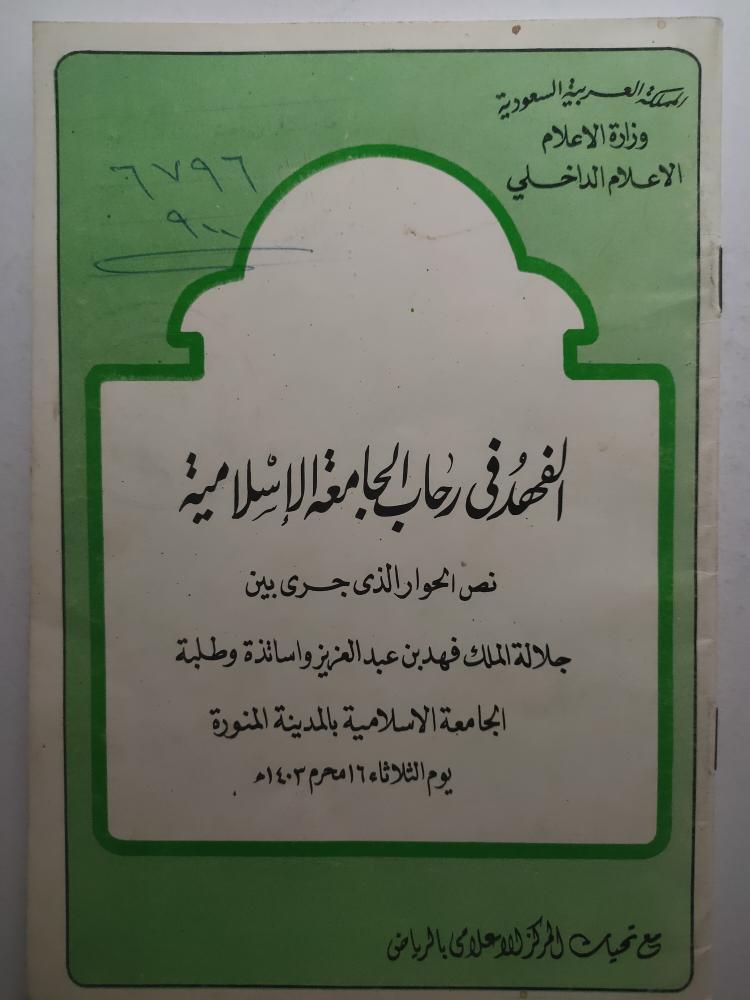 المملكة العربية السعودية
وزارة الاعلام
الاعلام الداخلي
٦٧٩٦
٩٠٠
الفهد في رحاب الجامعة الإسلامية
نص الحوار الذى جرى بين
جلالة الملك فهد بن عبد العزيز واساتذة وطلبة
الجامعة الاسلامية بالمدينة المنورة
يوم الثلاثاء ١٦ محرم ١٤٠٣هـ
مع تحيات المركز الاعلامى بالرياض